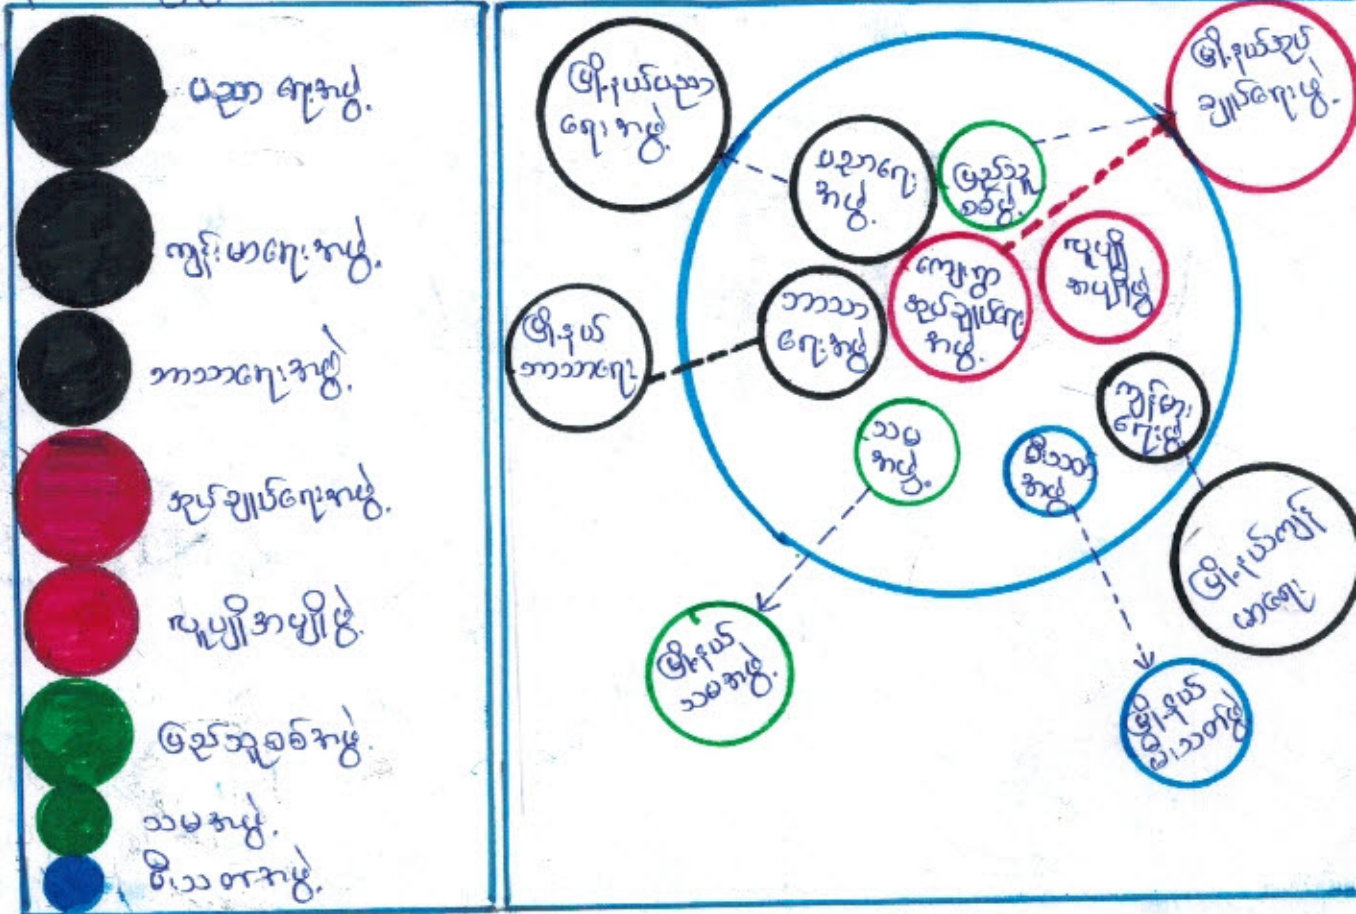 ပညာရေးအဖွဲ့
ကျန်းမာရေးအဖွဲ့
ဘာသာရေးအဖွဲ့
အုပ်ချုပ်ရေးအဖွဲ့
လူပျိုအပျိုဖွဲ့
ပြည်သူ့စစ်အဖွဲ့
သမအဖွဲ့
မီးသတ်အဖွဲ့
မြို့နယ်ပညာ
ရေးအဖွဲ့
မြို့နယ်အုပ်
ချုပ်ရေးဖွဲ့
ပညာရေး
အဖွဲ့
ပြည်သူ့
စစ်ဖွဲ့
ကျေးရွာ
အုပ်ချုပ်ရေး
အဖွဲ့
လူပျို
အပျိုဖွဲ့
ဘာသာ
ရေးအဖွဲ့
မြို့နယ်
ဘာသာရေး
ကျန်းမာ
ရေးဖွဲ့
သမ
အဖွဲ့
မီးသတ်
အဖွဲ့
မြို့နယ်ကျန်း
မာရေး
မြို့နယ်
သမအဖွဲ့
မြို့နယ်
မီးသတ်ဖွဲ့